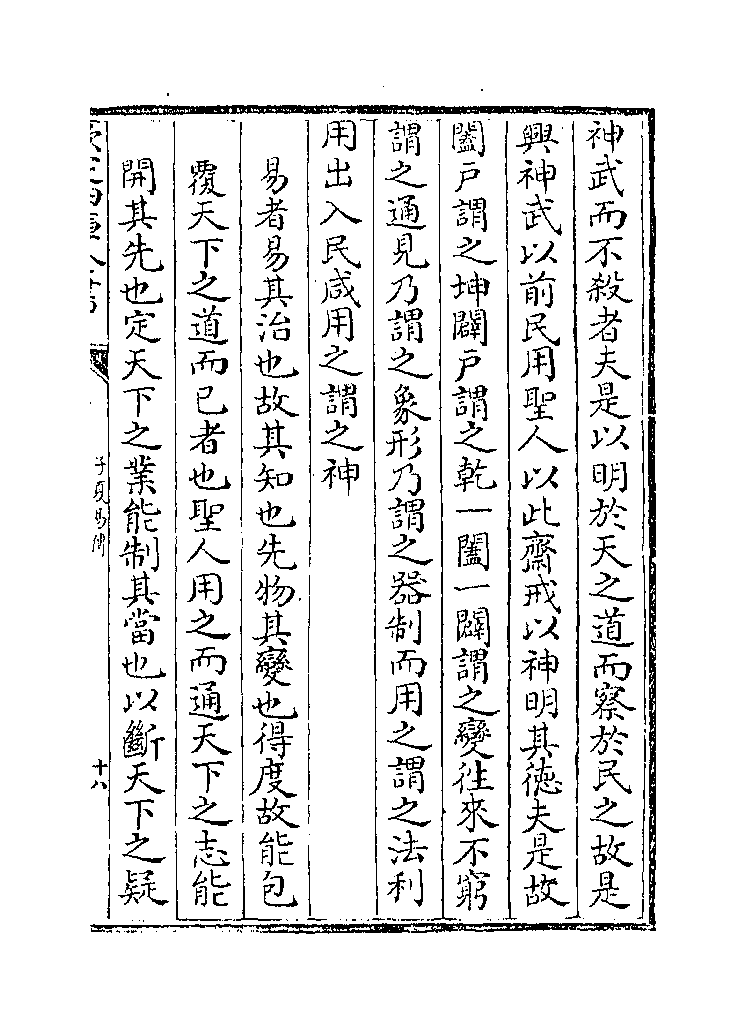 神武而不殺者夫是以明於天之道而察於民之故是
興神武以前民用聖人以此齋戒以神明其德夫是故
闔戶謂之坤闢戶謂之乾一闔一闢謂之變往來不窮
謂之通見乃謂之象形乃謂之器制而用之謂之法利
用出入民咸用之謂之神
易者易其治也故其知也先物其變也得度故能包
覆天下之道而已者也聖人用之而通天下之志能
開其先也定天下之業能制其當也以斷天下之疑
子夏易傳
十八